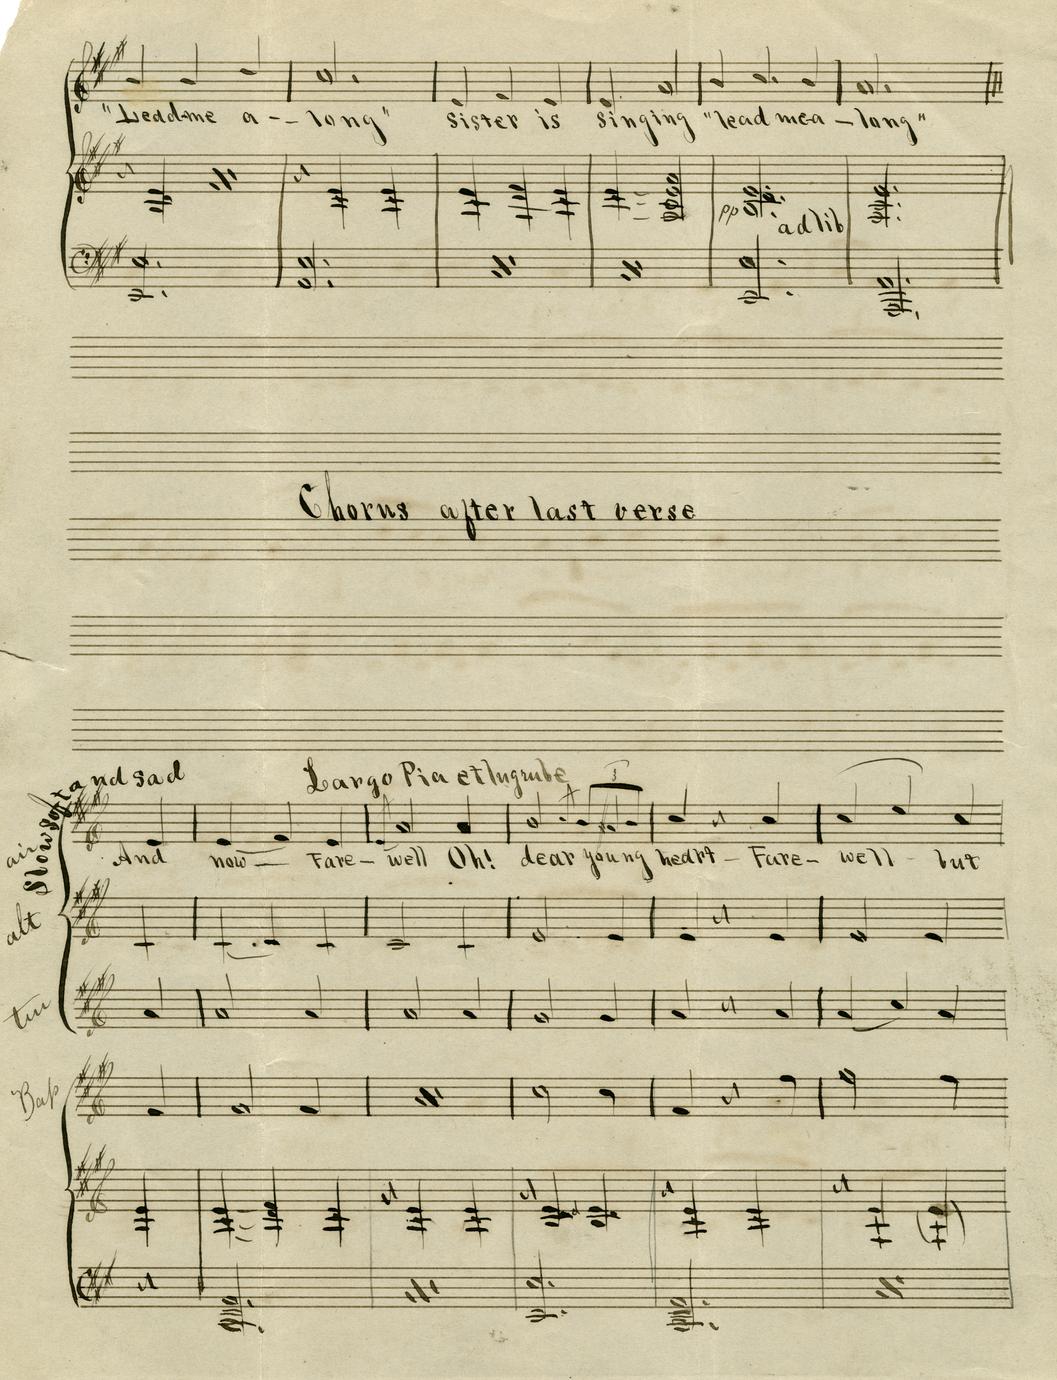 "Lead me a -- long" Sister is singing "lead me a - long"
pp ad lib
Chorus after last verse
Slow soft and sad Largo Pia et lugrube
air
3
And now - Fare - well Oh! dear young heart - Fare - well - but
alt
ten
Bass